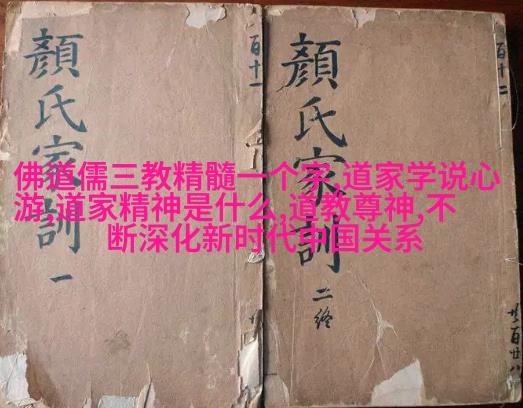 顏氏家訓 一
百十一
顏氏家訓 二終
百十二
佛道儒三教精髓一个字,道家学说心
游,道家精神是什么,道教尊神,不
断深化新时代中国关系